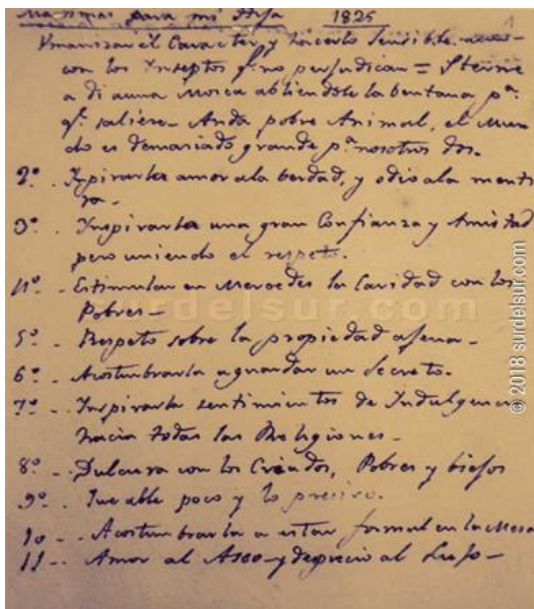 Maximas para mi Hija 1825
1
Umanizar el Caracter y hacerlo sensible aun
con los Inseptos q.e no perjudican = Sterne
a di auna Mosca abriendole la bentana p.a
q.e saliere - Anda pobre Animal, el Mun
do es demaciado grande p.a nosotros dos.
2.o - Inspirarla amor ala berdad, y odio ala menti
ra -
3.o - Inspirarla una gran Confianza y Amistad
pero uniendo el respeto.
4.o - Estimular en Mercedes la Caridad con los
Pobres -
5.o - Respeto sobre la propiedad agena -
6.o - Acostumbrarla aguardar un Secreto.
7.o - Inspirarla sentimientos de Indulgenci
hacia todas las Religiones -
8.o - Dulzura con los Criados, Pobres y biejos
9.o - Que able poco y lo presiso.
10 - Acostumbrarla a estar formal en la Mesa
11 - Amor al Aseo y desprecio al Lujo -
surdelsur.com
© 2018 surdelsur.com